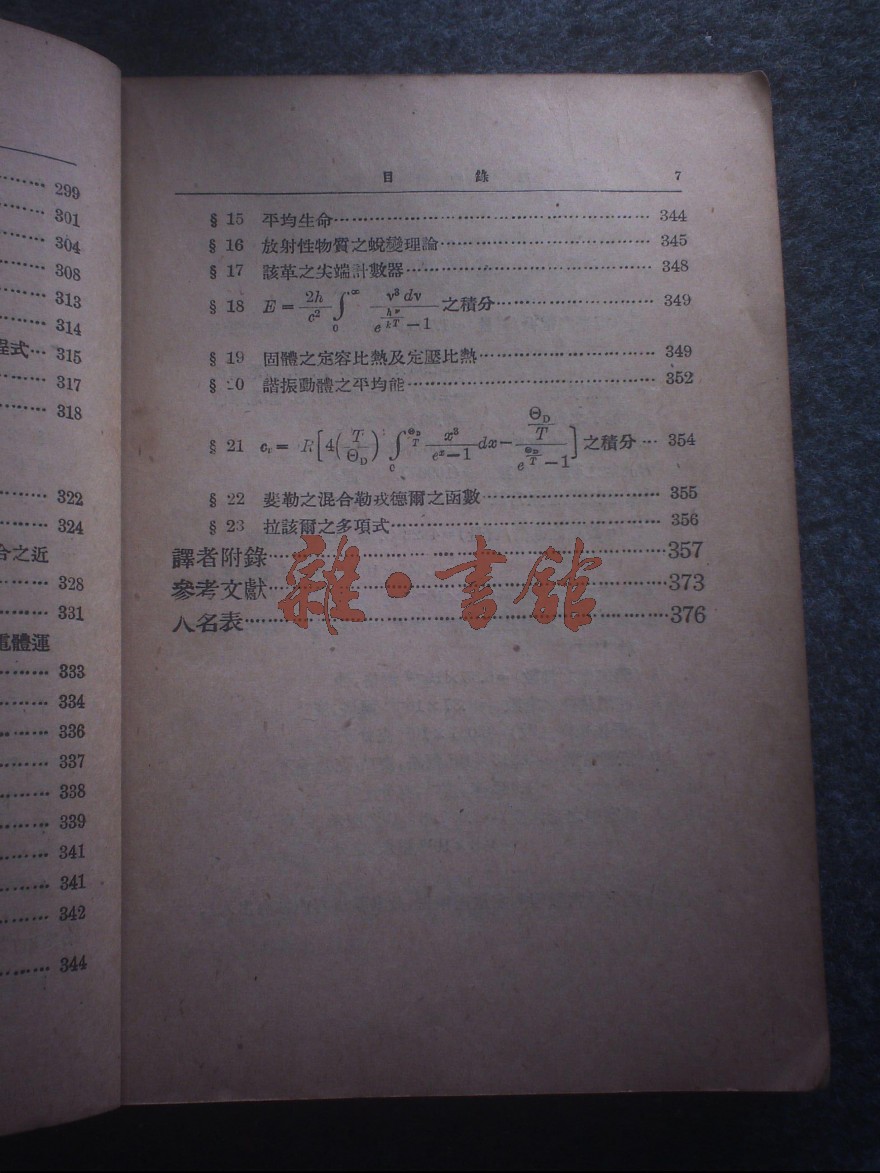 299
301
304
308
313
314
程式… 315
317
318
322
324
合之近
328
331
電體運
333
334
336
337
338
339
341
341
342
344
目 錄 7
§ 15 平均生命 344
§ 16 放射性物質之蛻變理論 345
§ 17 該革之尖端計數器 348
§ 18 E = \frac{2h}{c^2} \int_0^\infty \frac{ν^3 dν}{e^{\frac{hν}{kT}} - 1} 之積分 349
§ 19 固體之定容比熱及定壓比熱 349
§ 20 諧振動體之平均能 352
§ 21 c_v = R[4(\frac{T}{Θ_D})^3 \int_0^{\frac{Θ_D}{T}} \frac{x^3}{e^x - 1} dx - \frac{\frac{Θ_D}{T}}{e^{\frac{Θ_D}{T}} - 1}] 之積分 … 354
§ 22 斐勒之混合勒戎德爾之函數 355
§ 23 拉該爾之多項式 356
譯者附錄 357
參考文獻 373
人名表 376
雜·書館